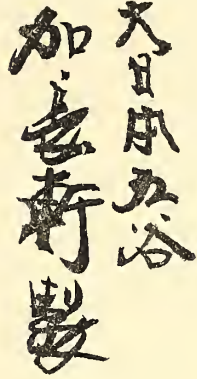 大日本九谷
加長軒製